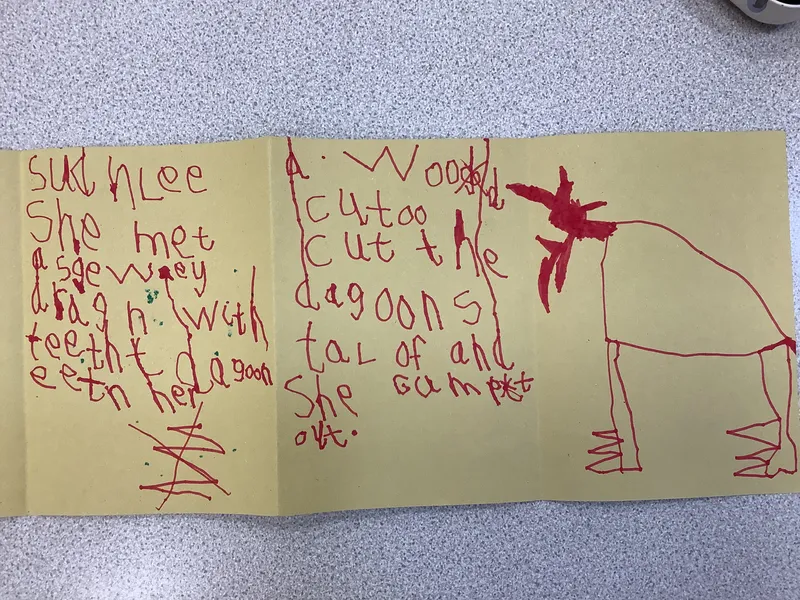 sudnLee
She met
a sgewey
dragn with
teetht dagoon
eetn her
a. Woosd
cutoo
cut the
dagoons
taL of and
She cumpet
out.